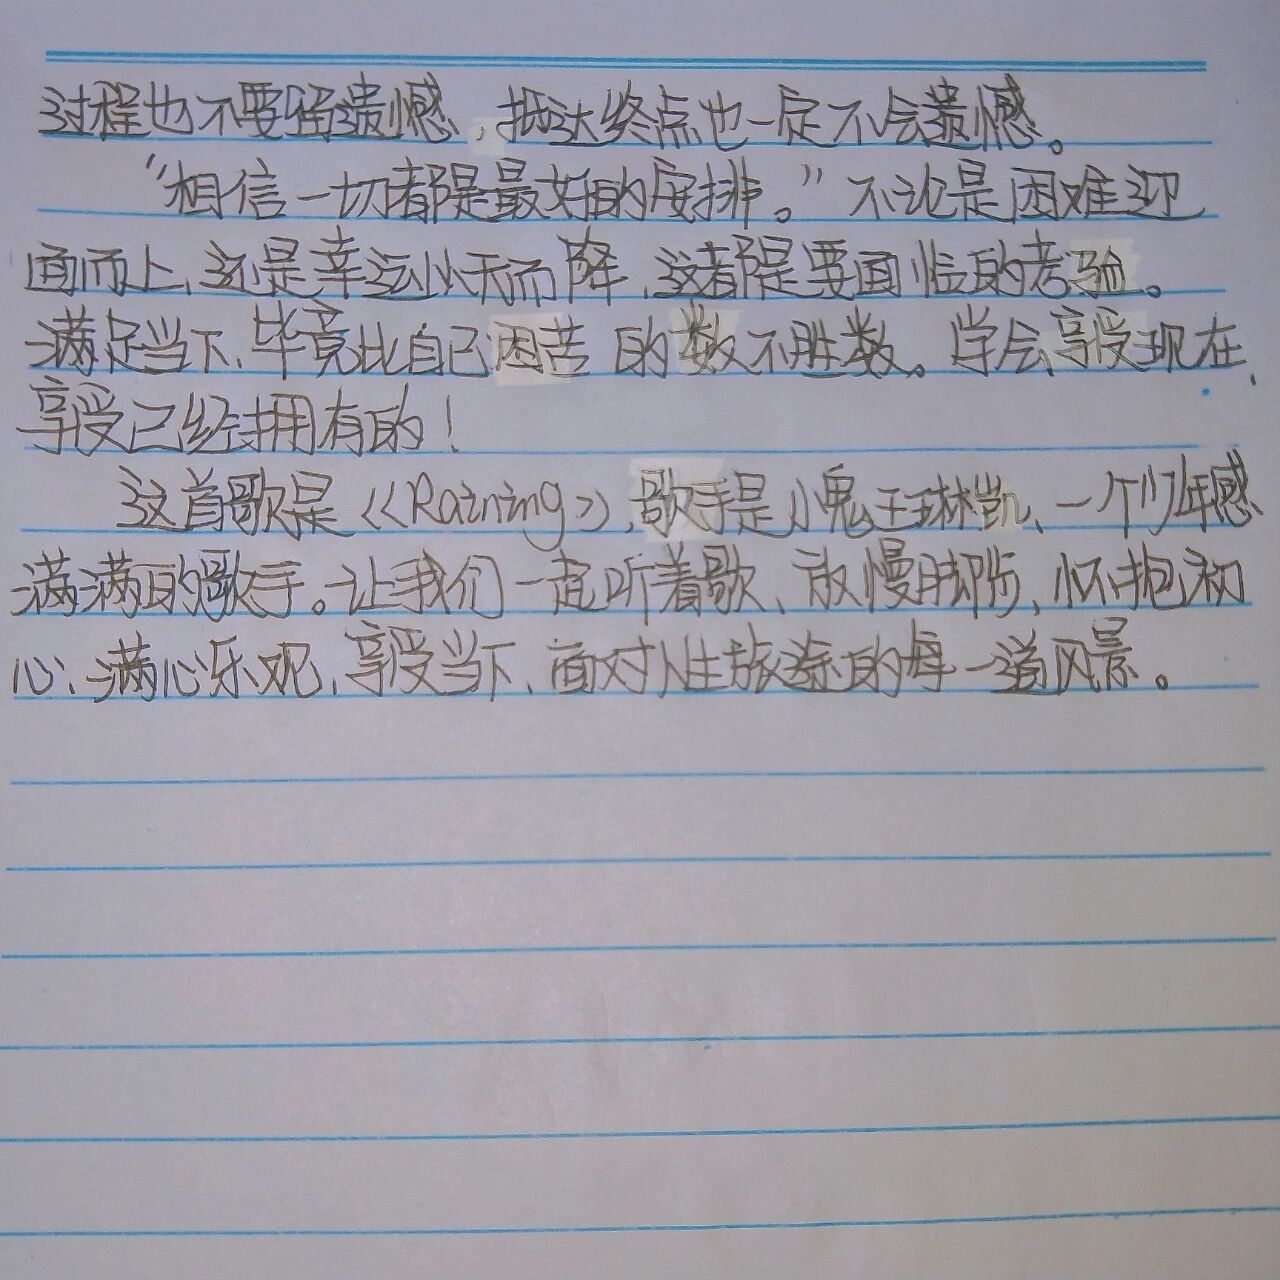 过程也不要留遗憾，抵达终点也一定不会遗憾。
“相信一切都是最好的安排。”不论是困难迎
面而上，还是幸运从天而降，这都是要面临的考验。
满足当下，毕竟比自己困苦的数不胜数。学会享受现在，
享受已经拥有的！
这首歌是《Raining》，歌手是小鬼王琳凯，一个少年感
满满的歌手。让我们一起听着歌、放慢脚步、怀抱初
心、满心乐观，享受当下，面对人生旅途的每一道风景。